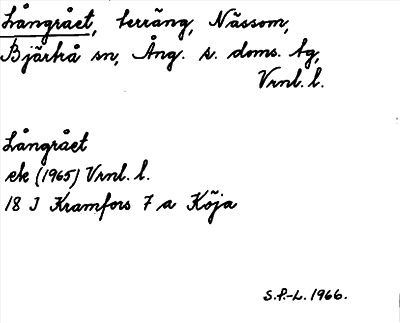 Långrået, terräng, Nässom,
Bjärtrå sn, Ång. s. doms. tg,
Vrnl. l.
Långrået
ek (1965) Vrnl. l.
18 J Kramfors 7 a Köja
S.P.-L. 1966.